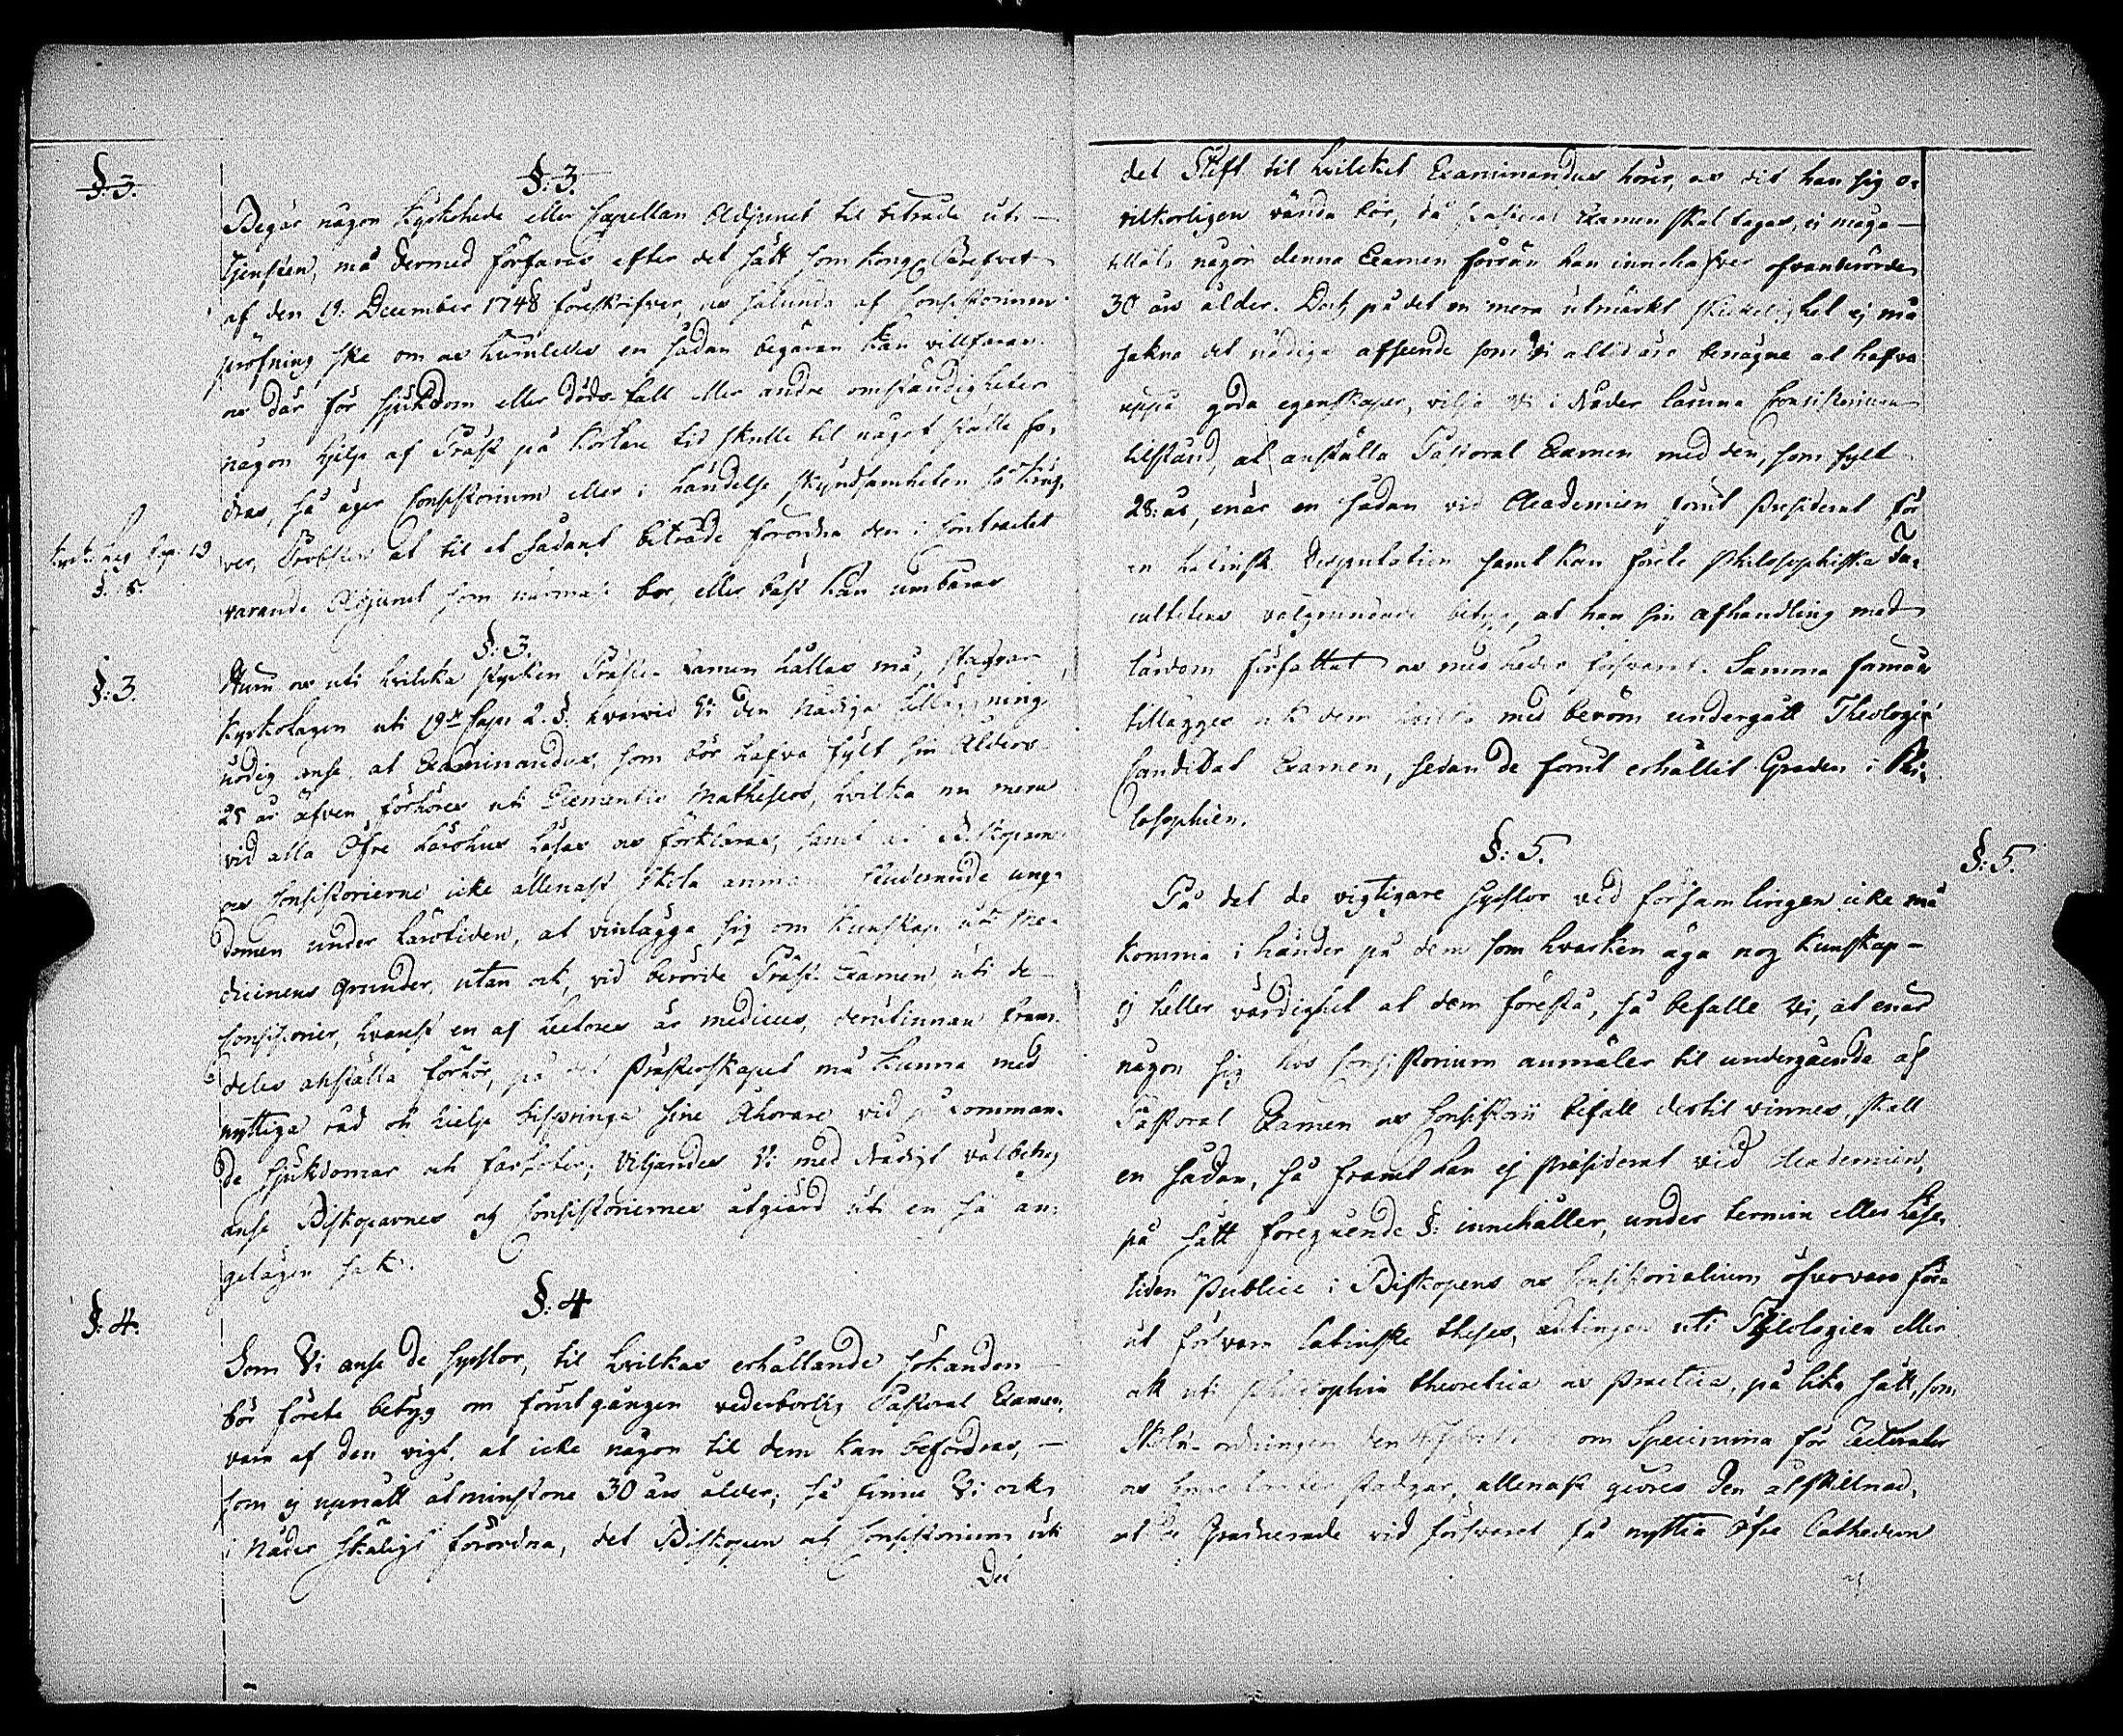 §:3.
§:3.
Begär någon Kyrkohede eller Capellan Adjunct til biträde uti
tjensten, må dermed förfaras efter det sätt som Kongl Brefvet
af den 19. December 1748 föreskrifver, os sålunda af Consistorium
pröfning ske om os huruledes en sådan begäran kan villfaras.
os där för sjukdom eller dödsfall eller andre omständigheter
någon hjelp af Präst på kortare tid skulle til något ställe fo-
dras, så äger Consistorium eller i händelse skyndsamheten så kräf-
ver, Probsten at til et sådant biträde förordna den i Contractet
varande Adjunct som närmast bor, eller bäst kan umbäras
Kyrko Lag Cap. 19
§. 8.
§:3.
§:3.
Huru os uti hvilcka stycken Präste-Examen hållas må, stadgar
Kyrkolagen uti 19de Cap: 2. §. hvarvid Vi den Nådiga tilläggning
nödig anse, at Examinandus, som bör hafva fylt sin Ålders
25 år äfven förhöres uti Elementis Matheseos, hvilka nu mera
vid alla Öfre Lärohus läsas os förklaras, samt at Biskoparne
os Consistorierne icke allenast skola anmana studerande ung-
domen under lärotiden, at vinlägga sig om kunskap uti Me-
dicinens grunder, utan ock, vid berörde Präst-Examen uti de
Consistorier, hvarest en af Lectores är medicus, derutinnan fram-
deles anställa förhör, på det Prästerskapet må kunna med
nyttiga råd och hielp bispringa sine Åhörare vid påkomman-
de sjukdomar och farsoter; Viljandes Vi med Nådigt välbehag
anse Biskoparnes og Consistoriernes åtgiärd uti en så an-
gelägen sak.
§:4
§:4.
Som Vi anse de syslor, til hvilkas erhållande sökanden
bör förete betyg om förutgången vederbörlig Pastoral Examen,
vara af den vigt, at icke någon til dem kan befordras,
som ej upnått åtminstone 30 års ålder; så finne Vi ock
i Nåder skäligt förordna, det Biskopen och Consistorium uti
Det
det Stift til hvilcket Examinandus hörer, os dit han sig o-
vilkorligen vända bör, då Pastoral Examen skal tagas, ej måga
tillåta någon denna Examen förrän han innehafver ofvanberörde
30 års ålder. Dock på det en mera utmärkt skickelighet ej må
sakna det nådiga afseende som Vi altid äro benägne at hafva
uppå goda egenskaper, vilje Vi i Nåder lämna Consistorium
tilstånd, at anställa Pastoral Examen med den, som fylt
28: år, enär en sådan vid Academien förut Præsiderat för
en Latinsk Disputation samt kan förete Philosophiska Fa-
cultetens välgrundade betyg, at han sin afhandling med
lärdom författat os med heder försvarat. Samma förmån
tillägges ock dem hvilka med beröm undergått Theologiæ
Candidat Examen, sedan de förut erhållit Graden i Phi-
losophien.
§: 5.
§: 5.
På det de vigtigare syslor vid församlingen icke må
komma i händer på dem som hvarken äga nog kunskap
ej heller värdighet at dem förestå, så befalle Vi, at enär
någon sig hos Consistorium anmäler til undergående af
Pastoral Examen os Consistorii bifall dertil vinnes, skall
en sådan, så framt han ej præsiderat vid Academien,
på sätt föregående §: innehåller, under termin eller läse-
tiden publice i Biskopens os Consistorialium öfvervaro för-
ut försvara latinske theses, antingen uti Theologien eller
ock uti Philosophia theoretica os practica, på lika sätt, som
Skole-ordningen om Specimina för Lectorater
os stadgar, allenast giöres den åtskillnad,
at de Graduerade vid försvaret få nyttia Öfre Cathedern